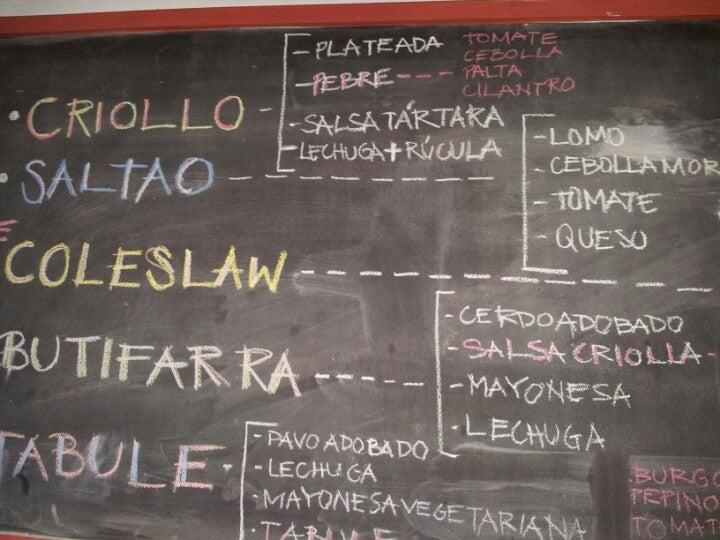 - PLATEADA
- PEBRE --- TOMATE
CEBOLLA
PALTA
CILANTRO
• CRIOLLO -
- SALSA TÁRTARA
- LECHUGA + RÚCULA
• SALTAO
- LOMO
- CEBOLLA MOR
- TOMATE
- QUESO
COLESLAW
BUTIFARRA
- CERDO ADOBADO
- SALSA CRIOLLA -
- MAYONESA
- LECHUGA
TABULE -
- PAVO ADOBADO
- LECHUGA
- MAYONESA VEGETARIANA
- TABULE
.BURGO
PEPINO
TOMAT